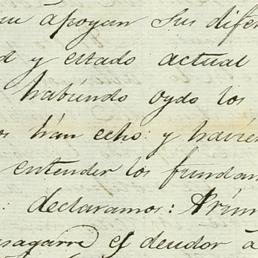 apoyan sus difer
y estado actual
habiendo oydo los
os hán echo: y havie
entender los fundam
: declaramos: Prim
asagarre el deudor à